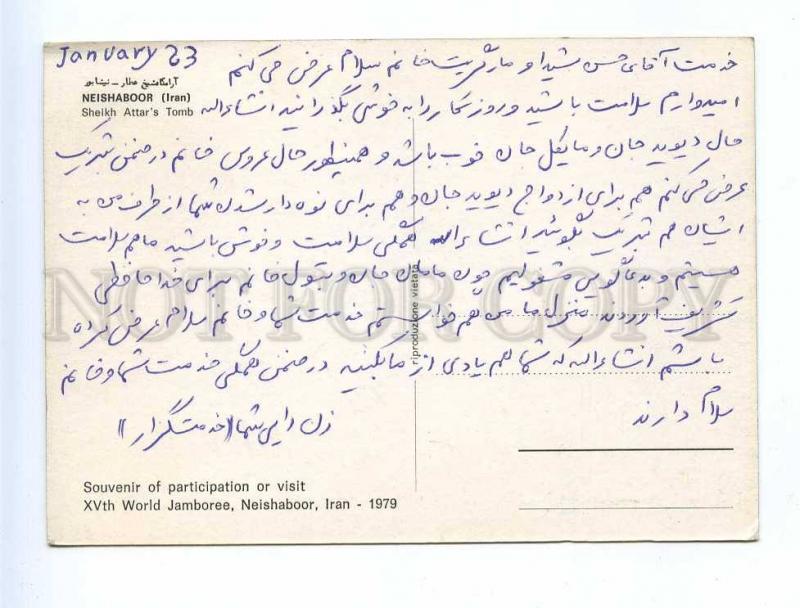 January 23
آرامگاه شیخ عطار - نیشابور
NEISHABOOR (Iran)
Sheikh Attar's Tomb
خدمت آقای حسن شیدا و مارگریت خانم سلام عرض می کنم
امیدوارم سلامت باشید و روزگار را به خوشی بگذرانید انشاءاله
حال دیوید جان و مایکل جان خوب باشد و همینطور حال عروس خانم در ضمن تبریک
عرض می کنم هم برای ازدواج دیوید جان و هم برای نوه دار شدن شما از طرف من به
ایشان هم تبریک بگوئید انشاءاله همگی سلامت و خوش باشید ما هم سلامت
هستیم و بدعاگویی مشغولیم چون مامان جان و بتول خانم برای خداحافظی
تشریف آوردند منزل ما من هم خواستم خدمت شما و خانم سلام عرض کرده
باشم انشاءاله که شما هم یادی از ما بکنید در ضمن همگی خدمت شما و خانم
سلام دارند
زن دایی شما (خدمتگزار)
riproduzione vietata
Souvenir of participation or visit
XVth World Jamboree, Neishaboor, Iran - 1979
NOT FOR COPY